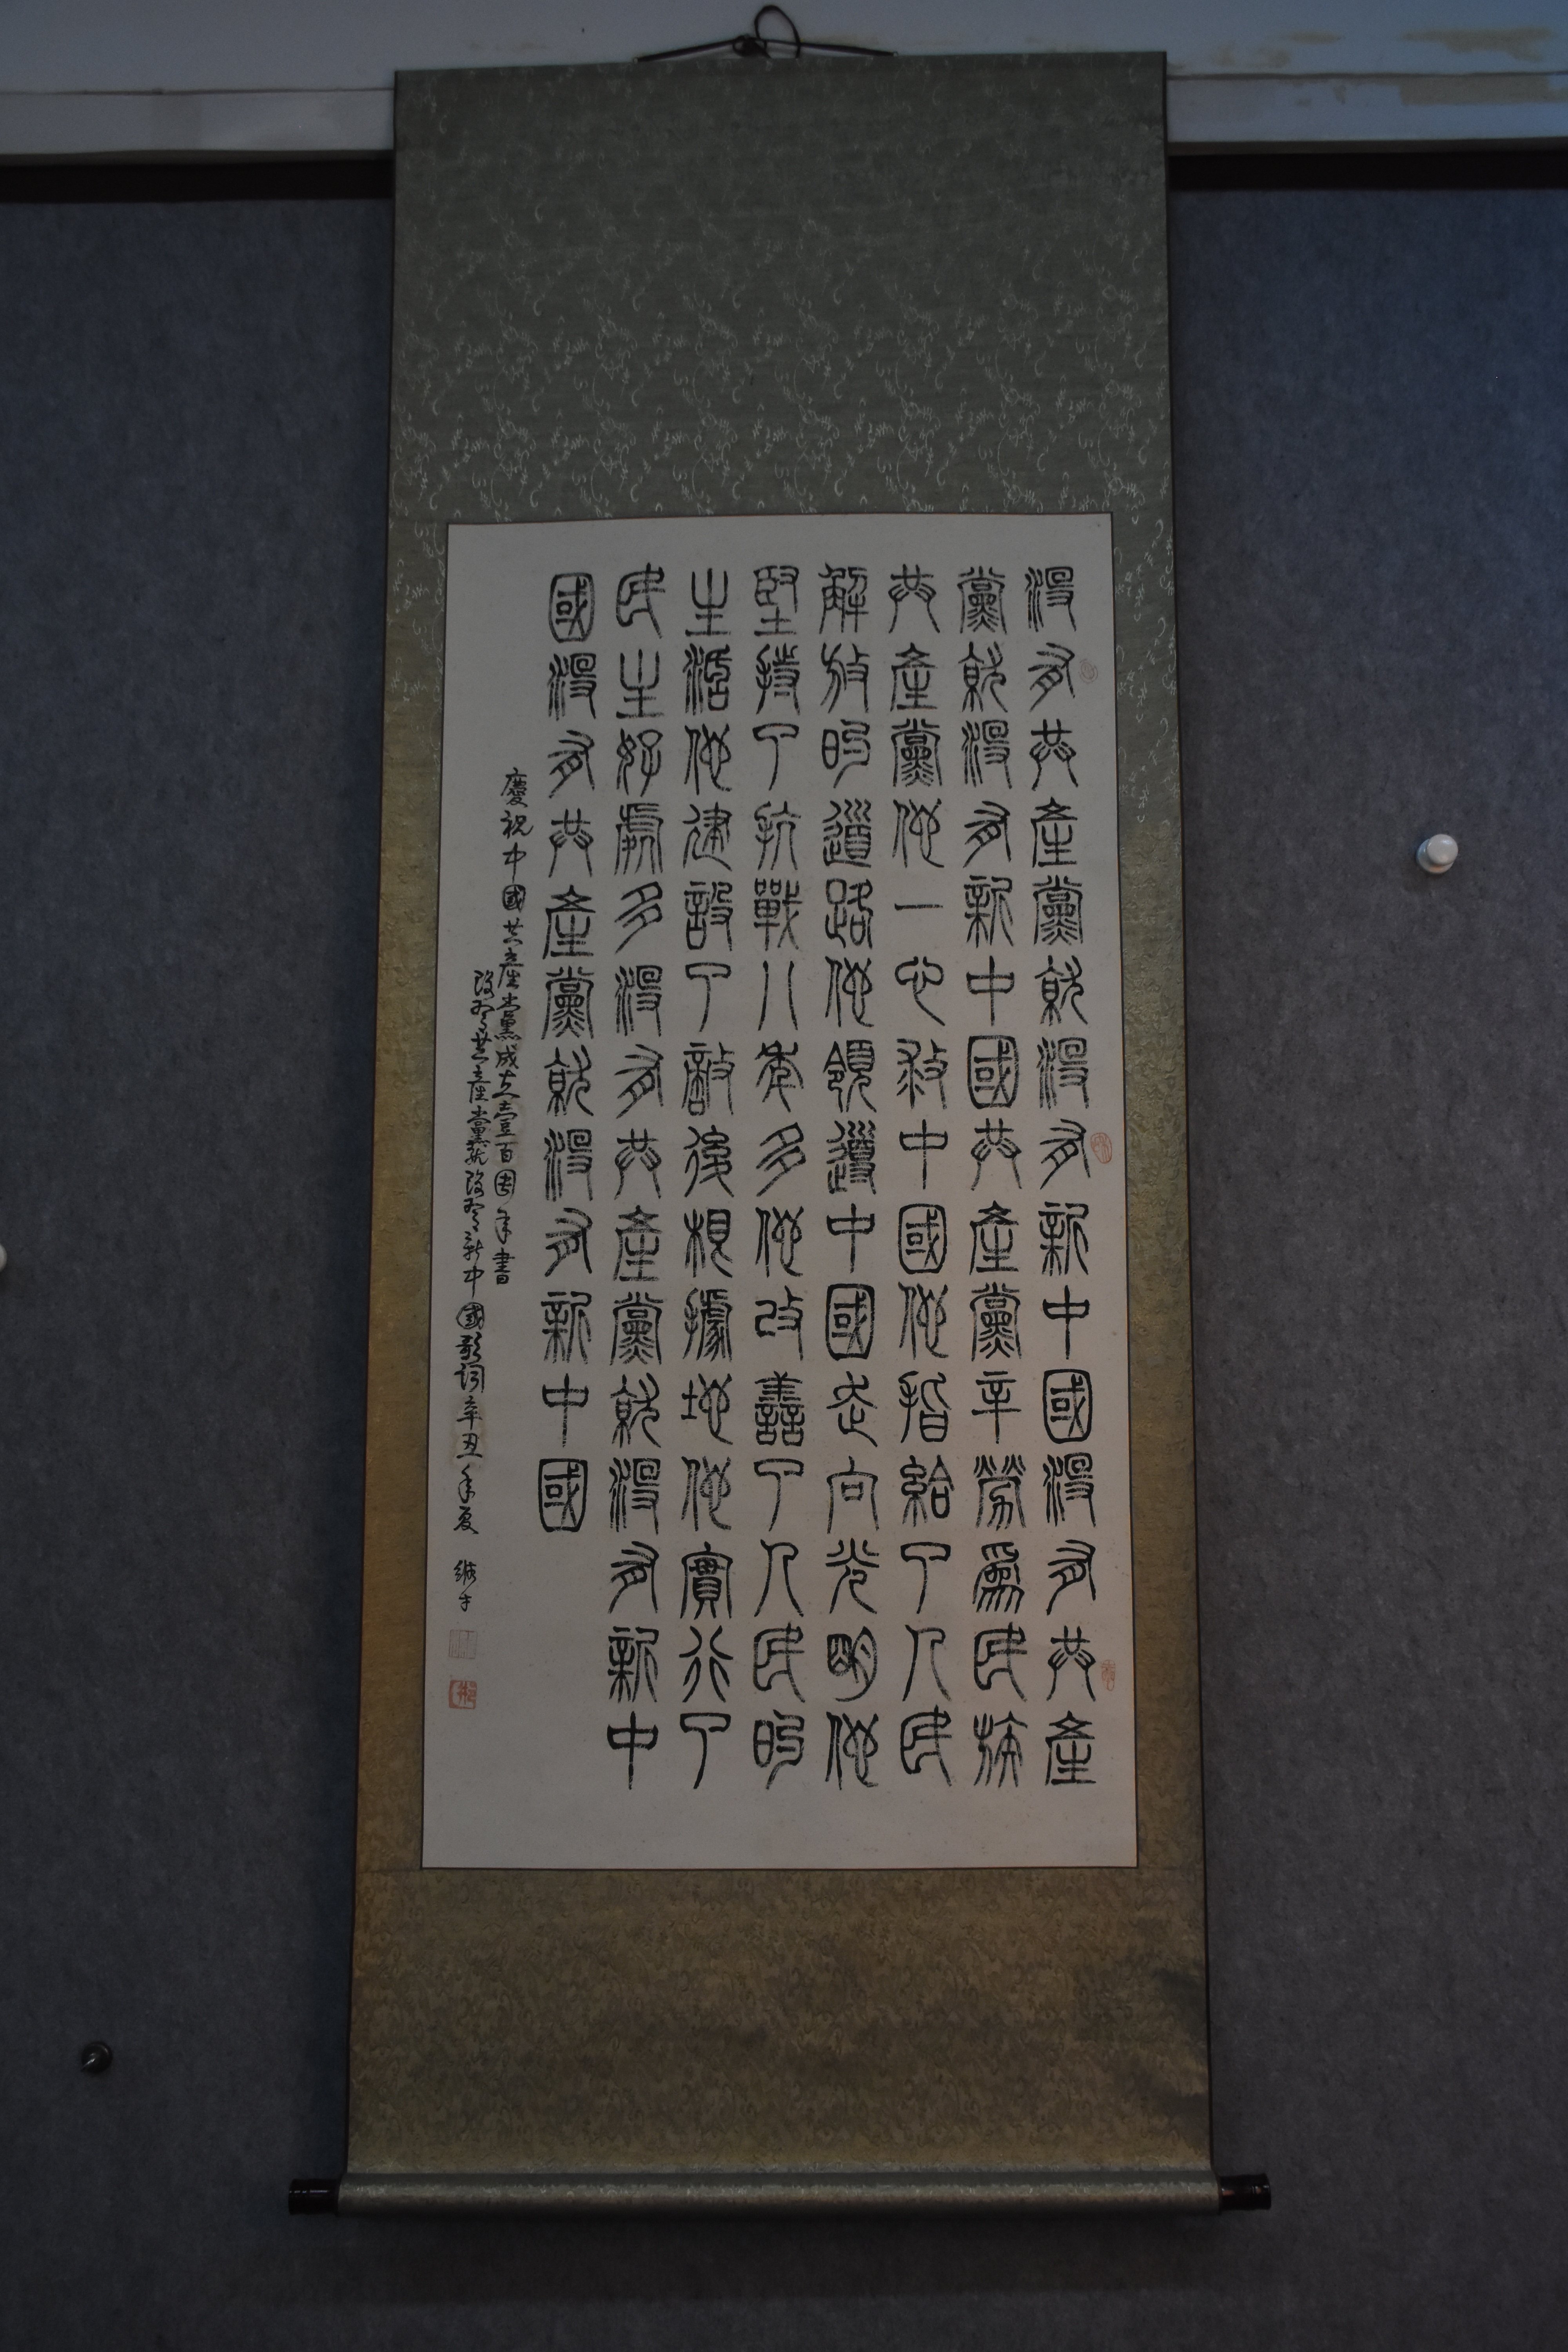 沒有共產黨就沒有新中國沒有共產
黨就沒有新中國共產黨辛勞爲民族
共產黨他一心救中國他指給了人民
解放的道路他領導中國走向光明他
堅持了抗戰八年多他改善了人民的
生活他建設了敵後根據地他實行了
民主好處多沒有共產黨就沒有新中
國沒有共產黨就沒有新中國
慶祝中國共產黨成立壹百周年書
沒有共產黨就沒有新中國歌詞辛丑年夏